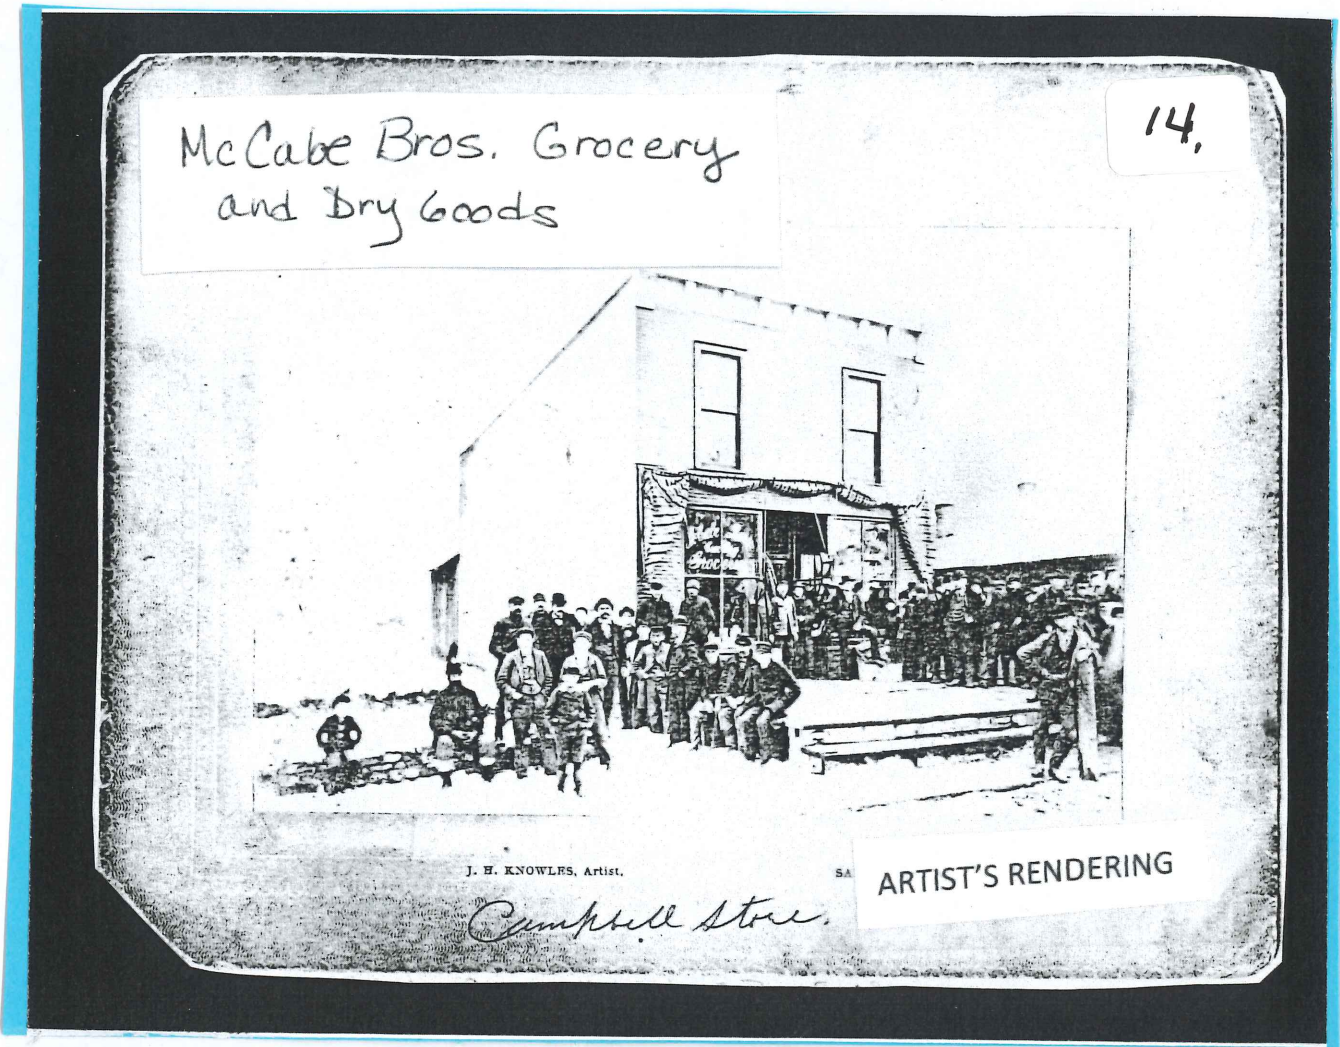 McCabe Bros. Grocery
and Dry Goods
14.
Grocery
J. H. KNOWLES, Artist.
SA
ARTIST'S RENDERING
Campbell Store.